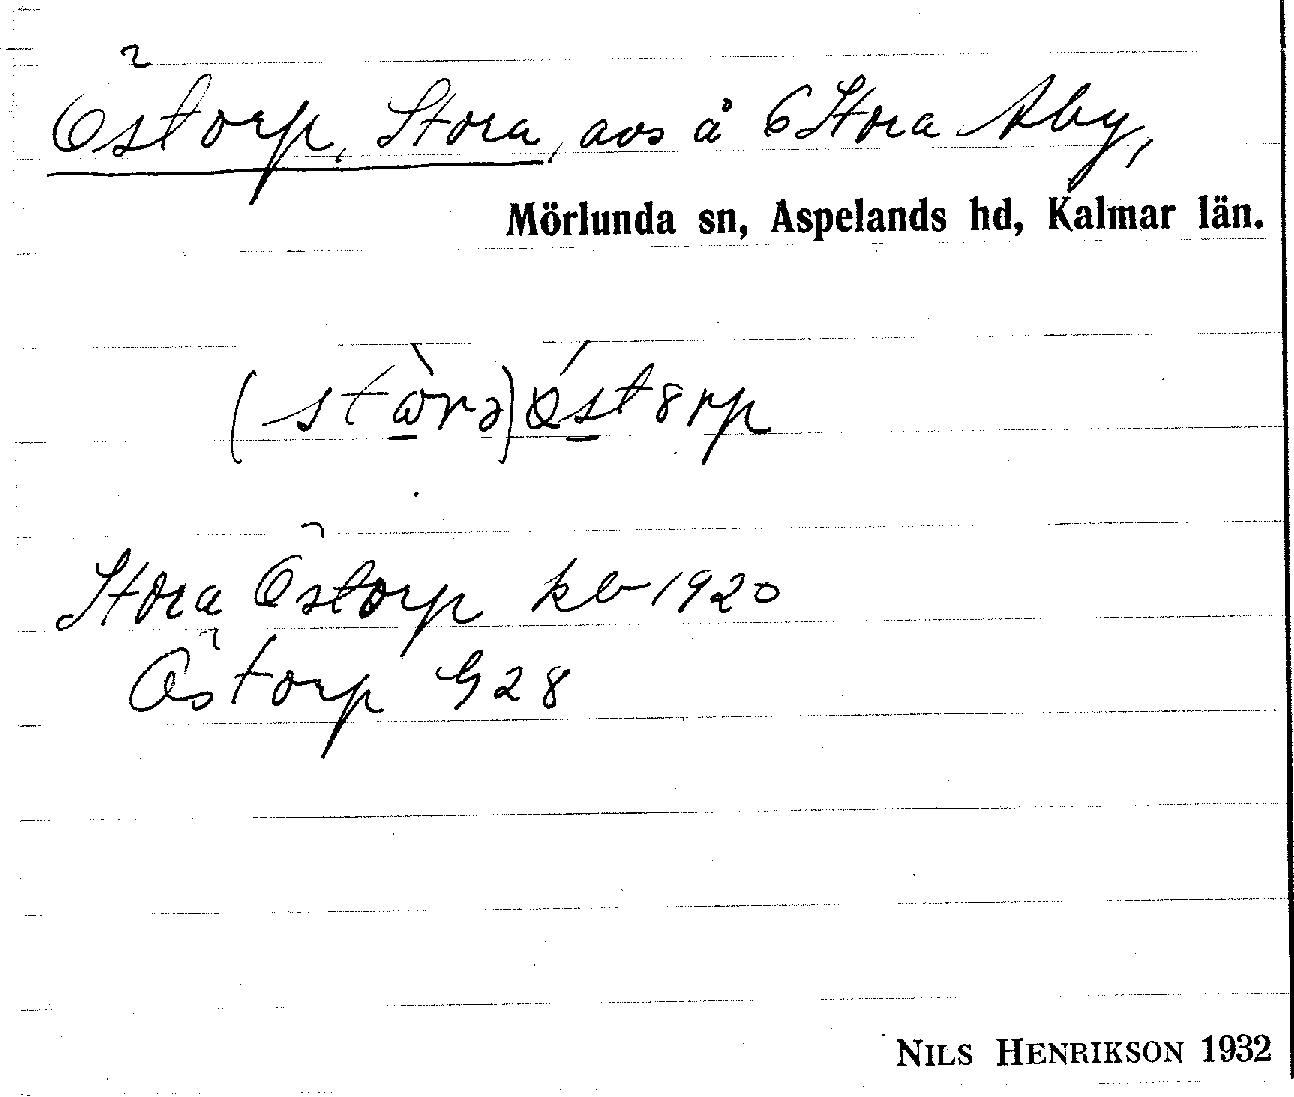 Östorp, Stora, avs å 6 Stora Åby,
Mörlunda sn, Aspelands hd, Kalmar län.
Stora Östorp kb 1920
Östorp G 28
NILS HENRIKSON 1932